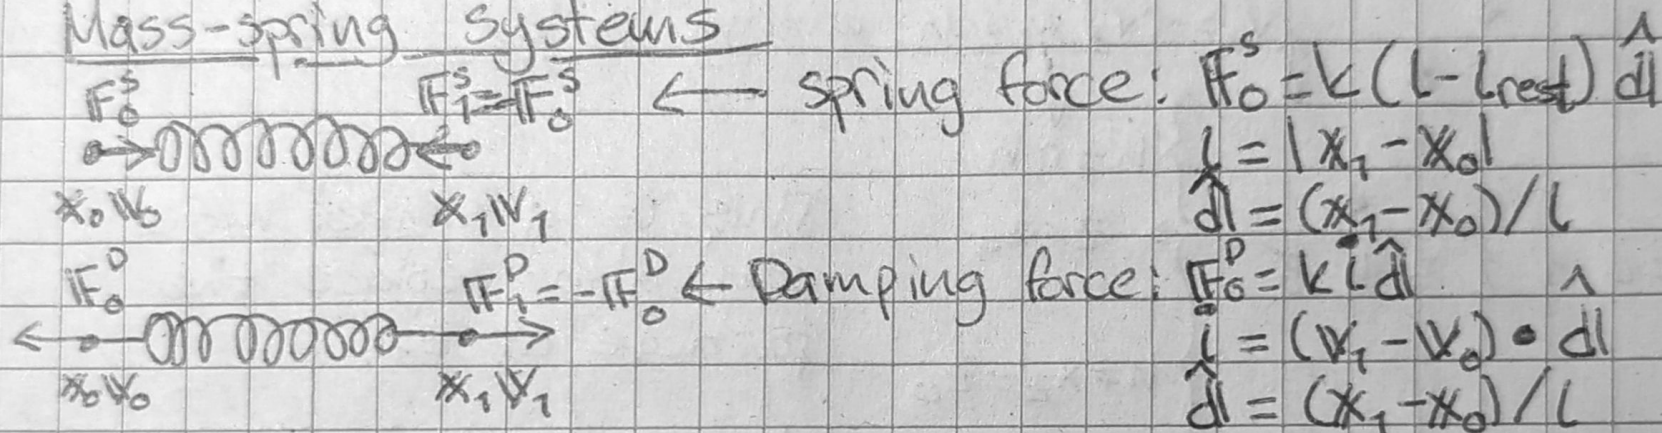 Mass-spring systems
𝔽₀ˢ 𝔽₁ˢ=-𝔽₀ˢ ← spring force: 𝔽₀ˢ = k(l - l_rest) d̂
l = |𝕩₁ - 𝕩₀|
𝕩₀ 𝕍₀ 𝕩₁ 𝕍₁ d̂ = (𝕩₁ - 𝕩₀)/l
𝔽₀ᴰ 𝔽₁ᴰ = -𝔽₀ᴰ ← Damping force: 𝔽₀ᴰ = k l̇ d̂
l̇ = (𝕍₁ - 𝕍₀) • d̂
𝕩₀ 𝕍₀ 𝕩₁ 𝕍₁ d̂ = (𝕩₁ - 𝕩₀)/l